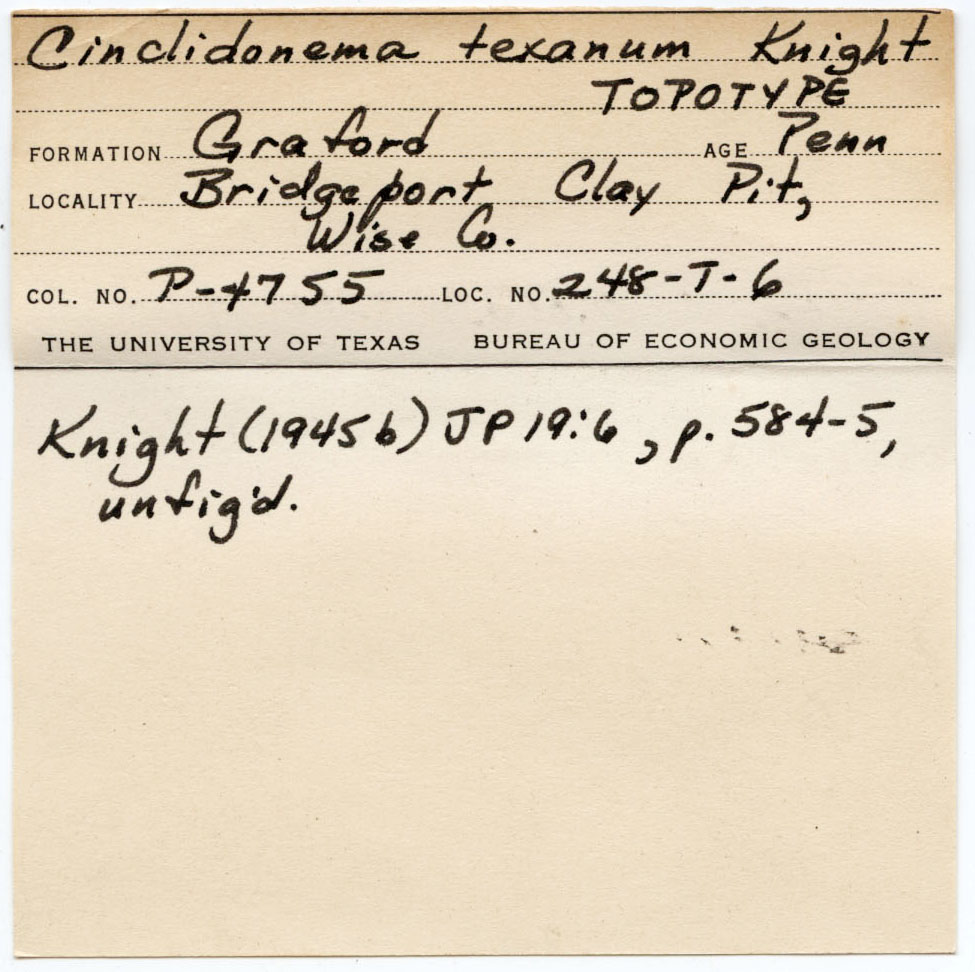 Cinclidonema texanum Knight
TOPOTYPE
FORMATION Graford AGE Penn
LOCALITY Bridgeport Clay Pit,
Wise Co.
COL. NO. P-4755 LOC. NO. 248-T-6
THE UNIVERSITY OF TEXAS BUREAU OF ECONOMIC GEOLOGY
Knight (1945b) JP 19:6, p. 584-5,
unfig'd.